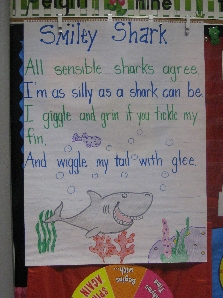 nine
Smiley Shark
All sensible sharks agree
I'm as silly as a shark can be.
I giggle and grin if you tickle my
fin,
And wiggle my tail with glee.
SPIN
AGAIN
Begins
with...